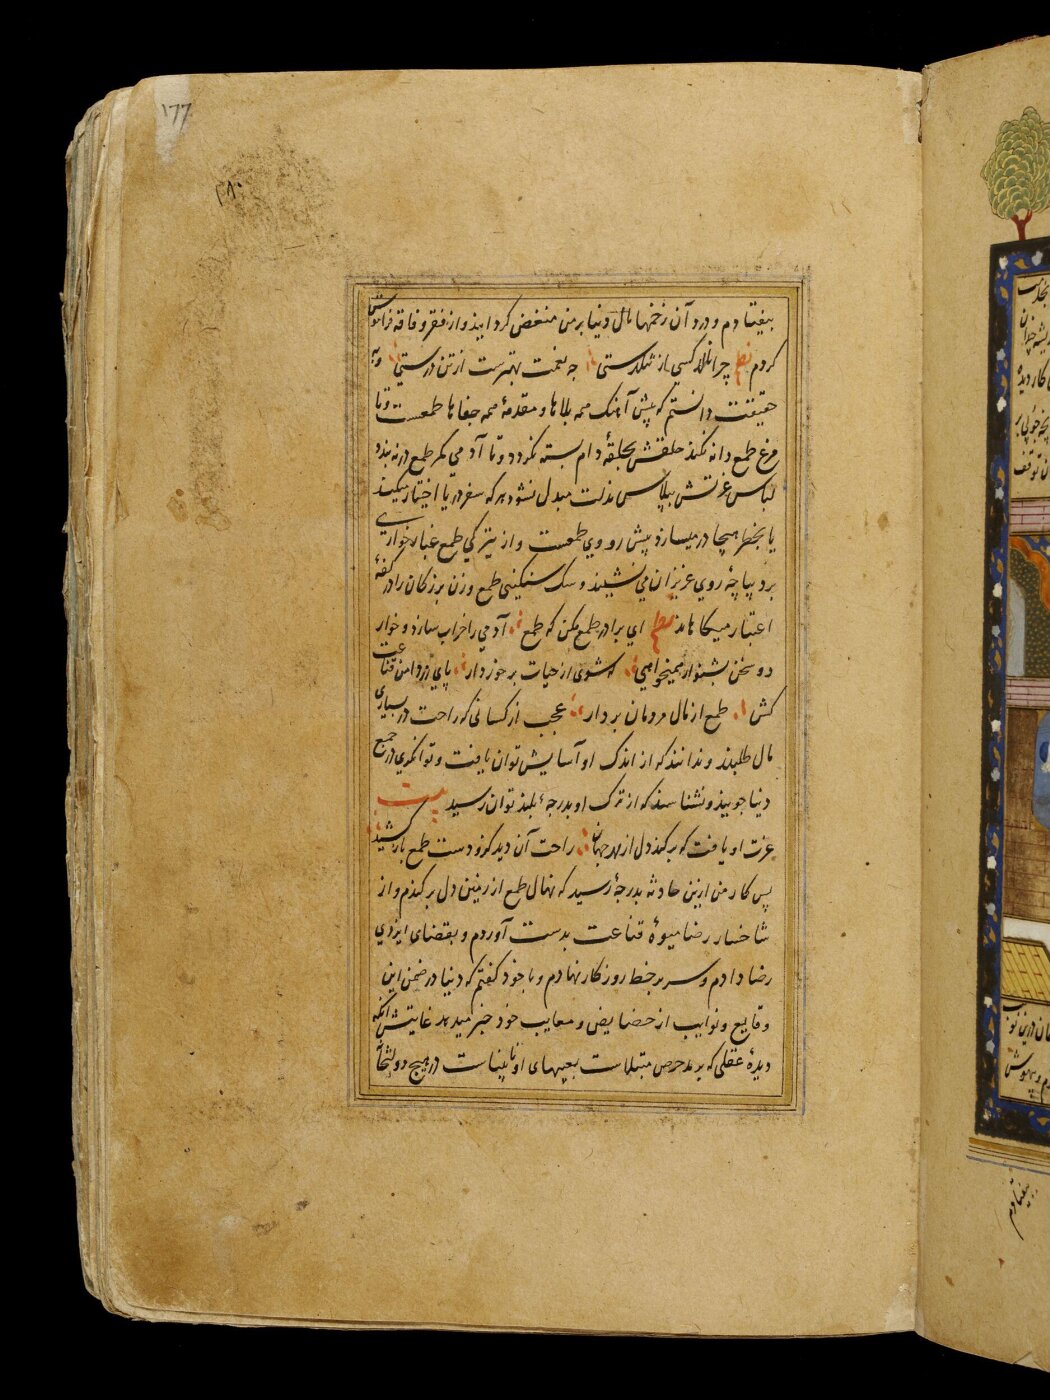 ۱۷۷
بیفتادم و درد آن زخمها مال دنیا بر من منغض گردانید و از فقر و فاقه فراموش
کردم نظم چرا نالد کسی از تنکدستی چه نعمت بهترست از تن درستی و به
حقیقت دانستم که پیش آهنک همه بلاها و مقدمهٔ همه جفاها طمعست و تا
مرغ طمع دانه نکند حلقش بحلقهٔ دام بسته نکردد و تا آدمی کمر طمع در نه بندد
لباس عزتش بپلاس مذلت مبدل نشود هر که سفر دریا اختیار میکند
یا بخطر هیجا در میسازد پیش رو وی طمعست و از تیزکی طمع غبار خواری
بر دیباچهٔ روی عزیزان می نشیند و سنک سنکینی طمع وزن بزرکان را در کفهٔ
اعتبار میکاهاند نظم ای برادر طمع مکن که طمع آدمی را خراب سازد و خوار
دو سخن بشنو ار همیخواهی که شوی از حیات برخوردار پای در دامن قناعت
کش طمع از مال مردمان بردار عجب از کسانی که راحت در بسیاری
مال طلبند و ندانند که از اندک او آسایش توان یافت و توانکری در جمع
دنیا جویند و نشناسند که از ترک او بدرجهٔ بلند توان رسید بیت
عزت او یافت که برکند دل از مهر جهان راحت آن دید که زو دست طمع باز کشید
پس کار من ازین حادثه بدرجهٔ رسید که نهال طمع از زمین دل برکندم و از
شاخسار رضا میوهٔ قناعت بدست آوردم و بقضای ایزدی
رضا دادم و سر بر خط روزکار نهادم و با خود کفتم که دنیا در ضمن این
وقایع و نوایب از خصایص و معایب خود خبر میدهد غایتش آنکه
دیدهٔ عقلی که برمد حرص مبتلاست بعیبهای او نابیناست در هیچ
بیفتادم